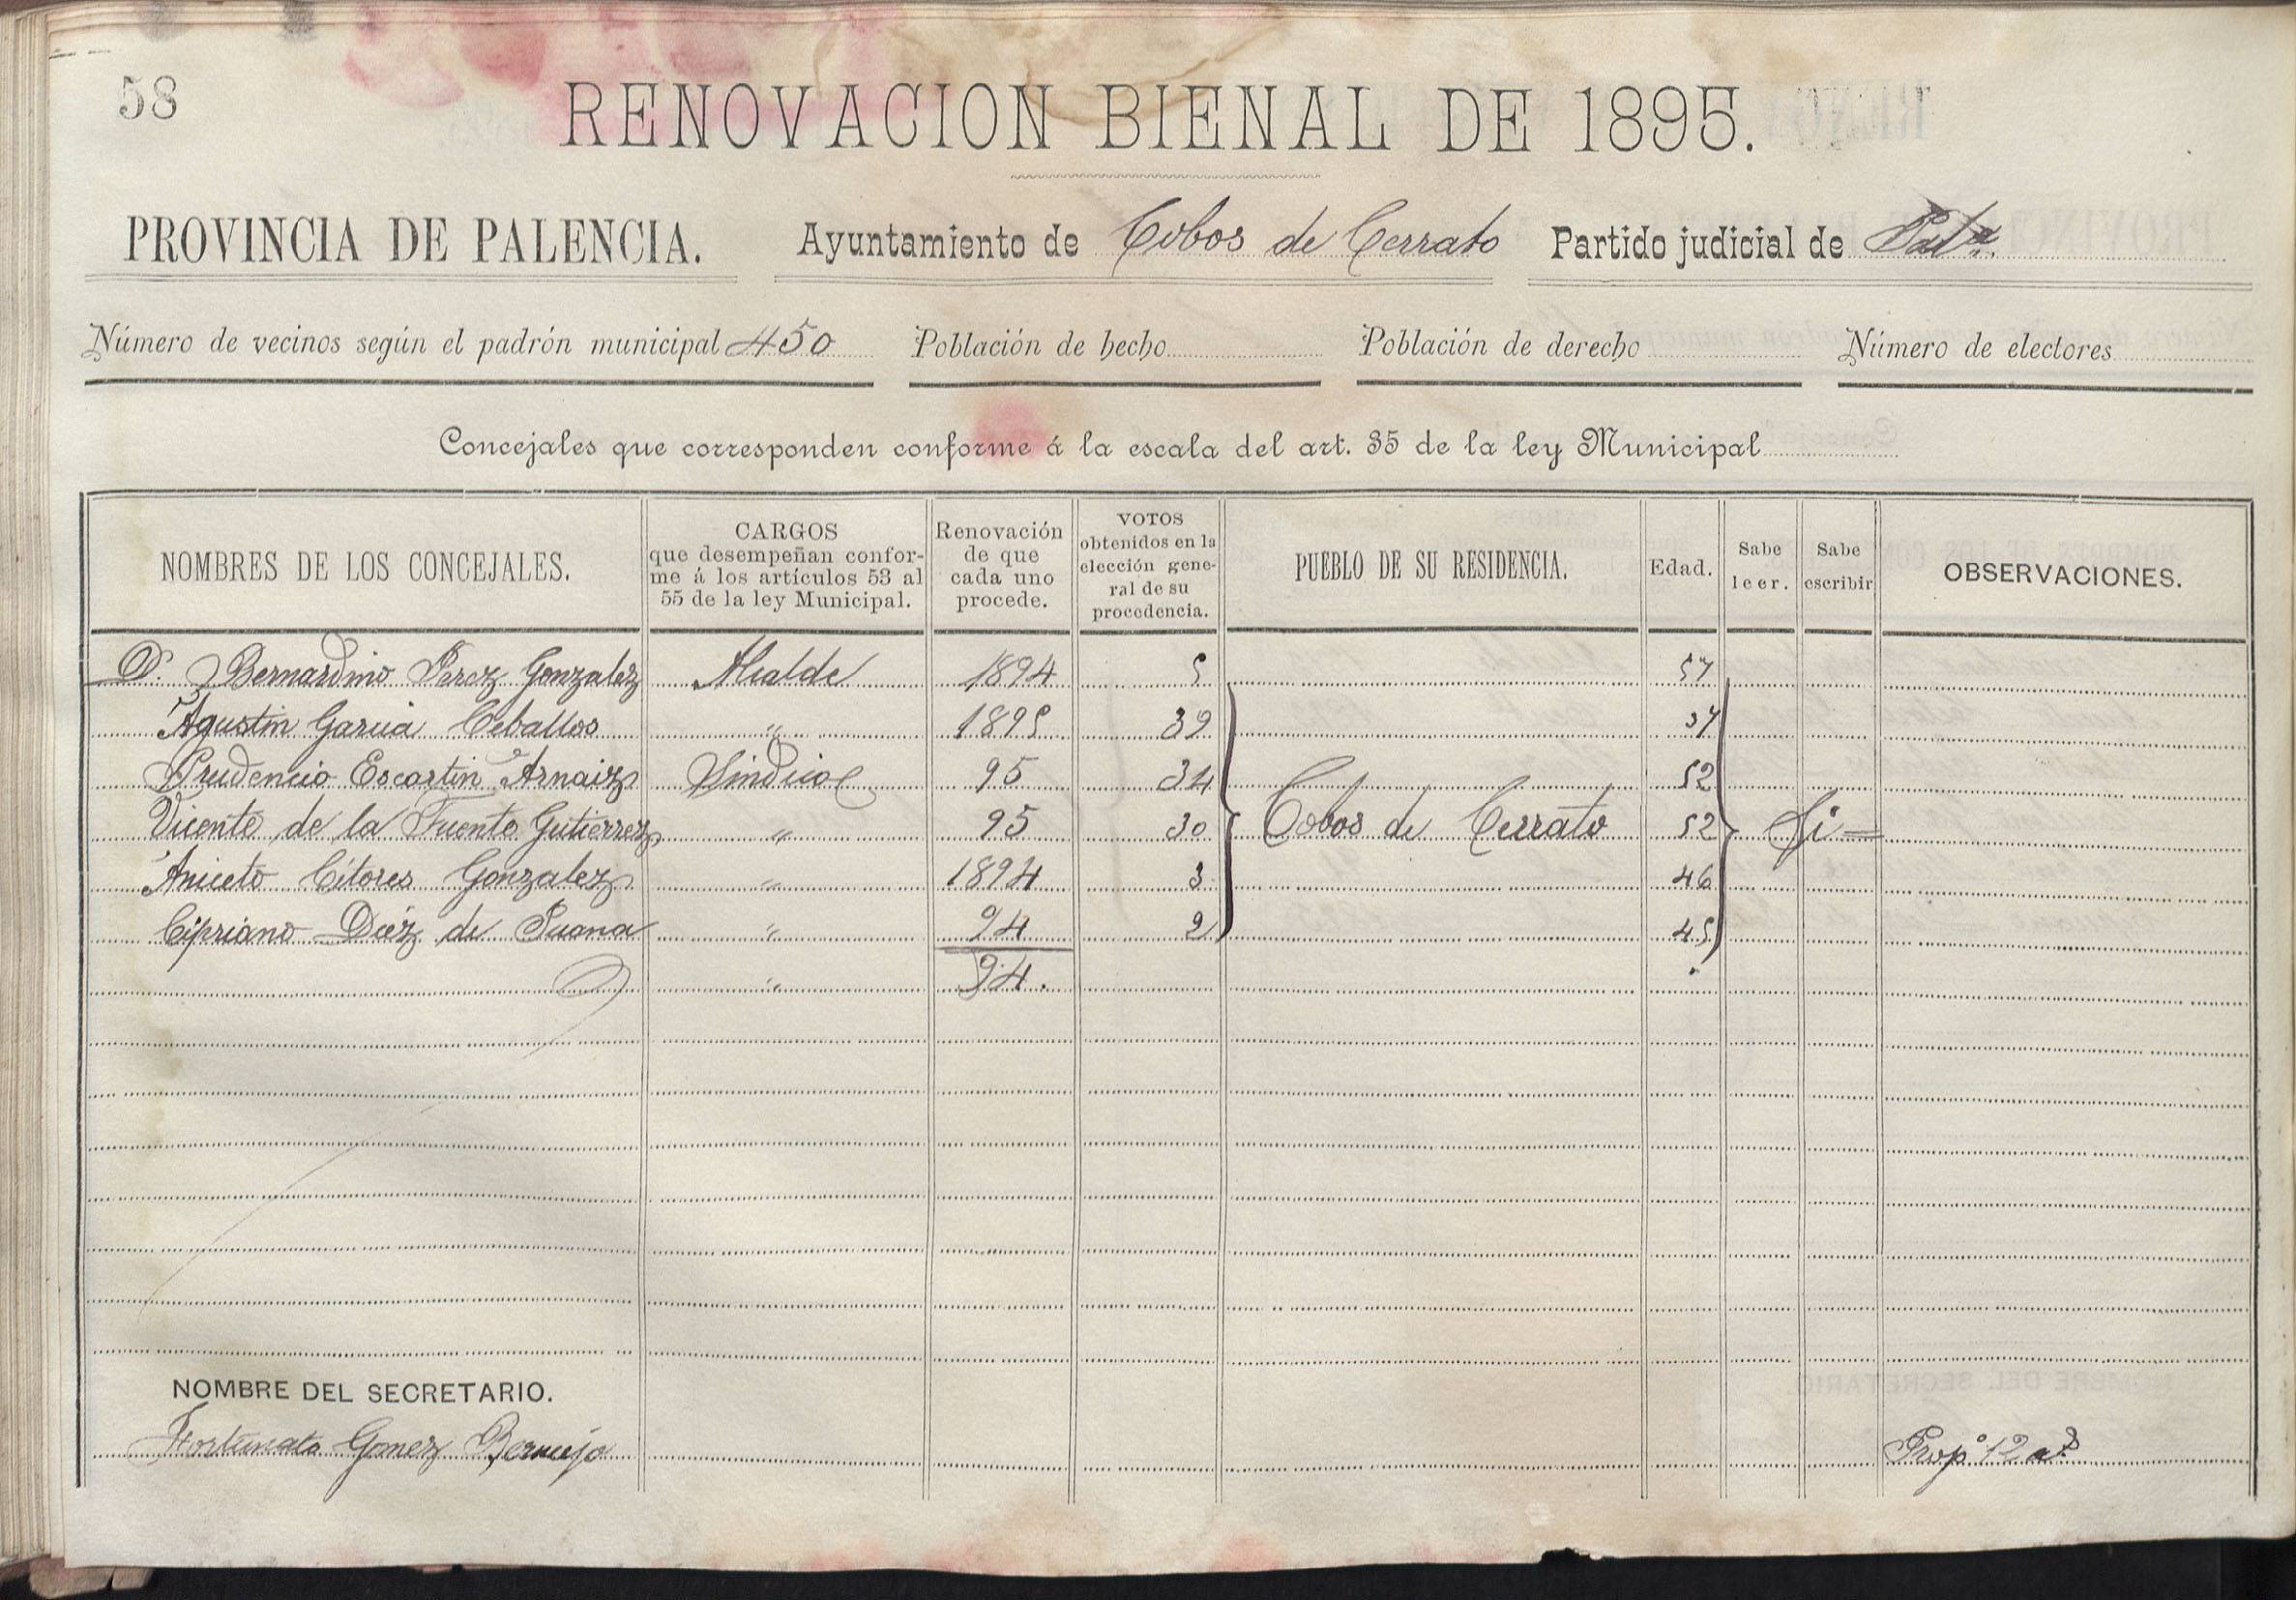 58
RENOVACION BIENAL DE 1895.
PROVINCIA DE PALENCIA. Ayuntamiento de Cobos de Cerrato Partido judicial de
Número de vecinos según el padrón municipal 450 Población de hecho Población de derecho Número de electores
Concejales que corresponden conforme á la escala del art. 35 de la ley Municipal
NOMBRES DE LOS CONCEJALES.
CARGOS
que desempeñan confor-
me á los artículos 53 al
55 de la ley Municipal.
Renovación
de que
cada uno
procede.
VOTOS
obtenidos en la
elección gene-
ral de su
procedencia.
PUEBLO DE SU RESIDENCIA.
Edad.
Sabe
leer.
Sabe
escribir
OBSERVACIONES.
D. Bernardino Perez Gonzalez Alcalde 1894 5 57
Agustin Garcia Ceballos " 1895 39 37
Prudencio Escartin Arnaiz Sindico 95 34 52
Vicente de la Fuente Gutierrez " 95 30 Cobos de Cerrato 52 Si
Aniceto Citores Gonzalez " 1894 3 46
Cipriano Diez de Juana " 94 2 45
" 94.
NOMBRE DEL SECRETARIO.
Fortunato Gomez Bermejo Propº 12 aª